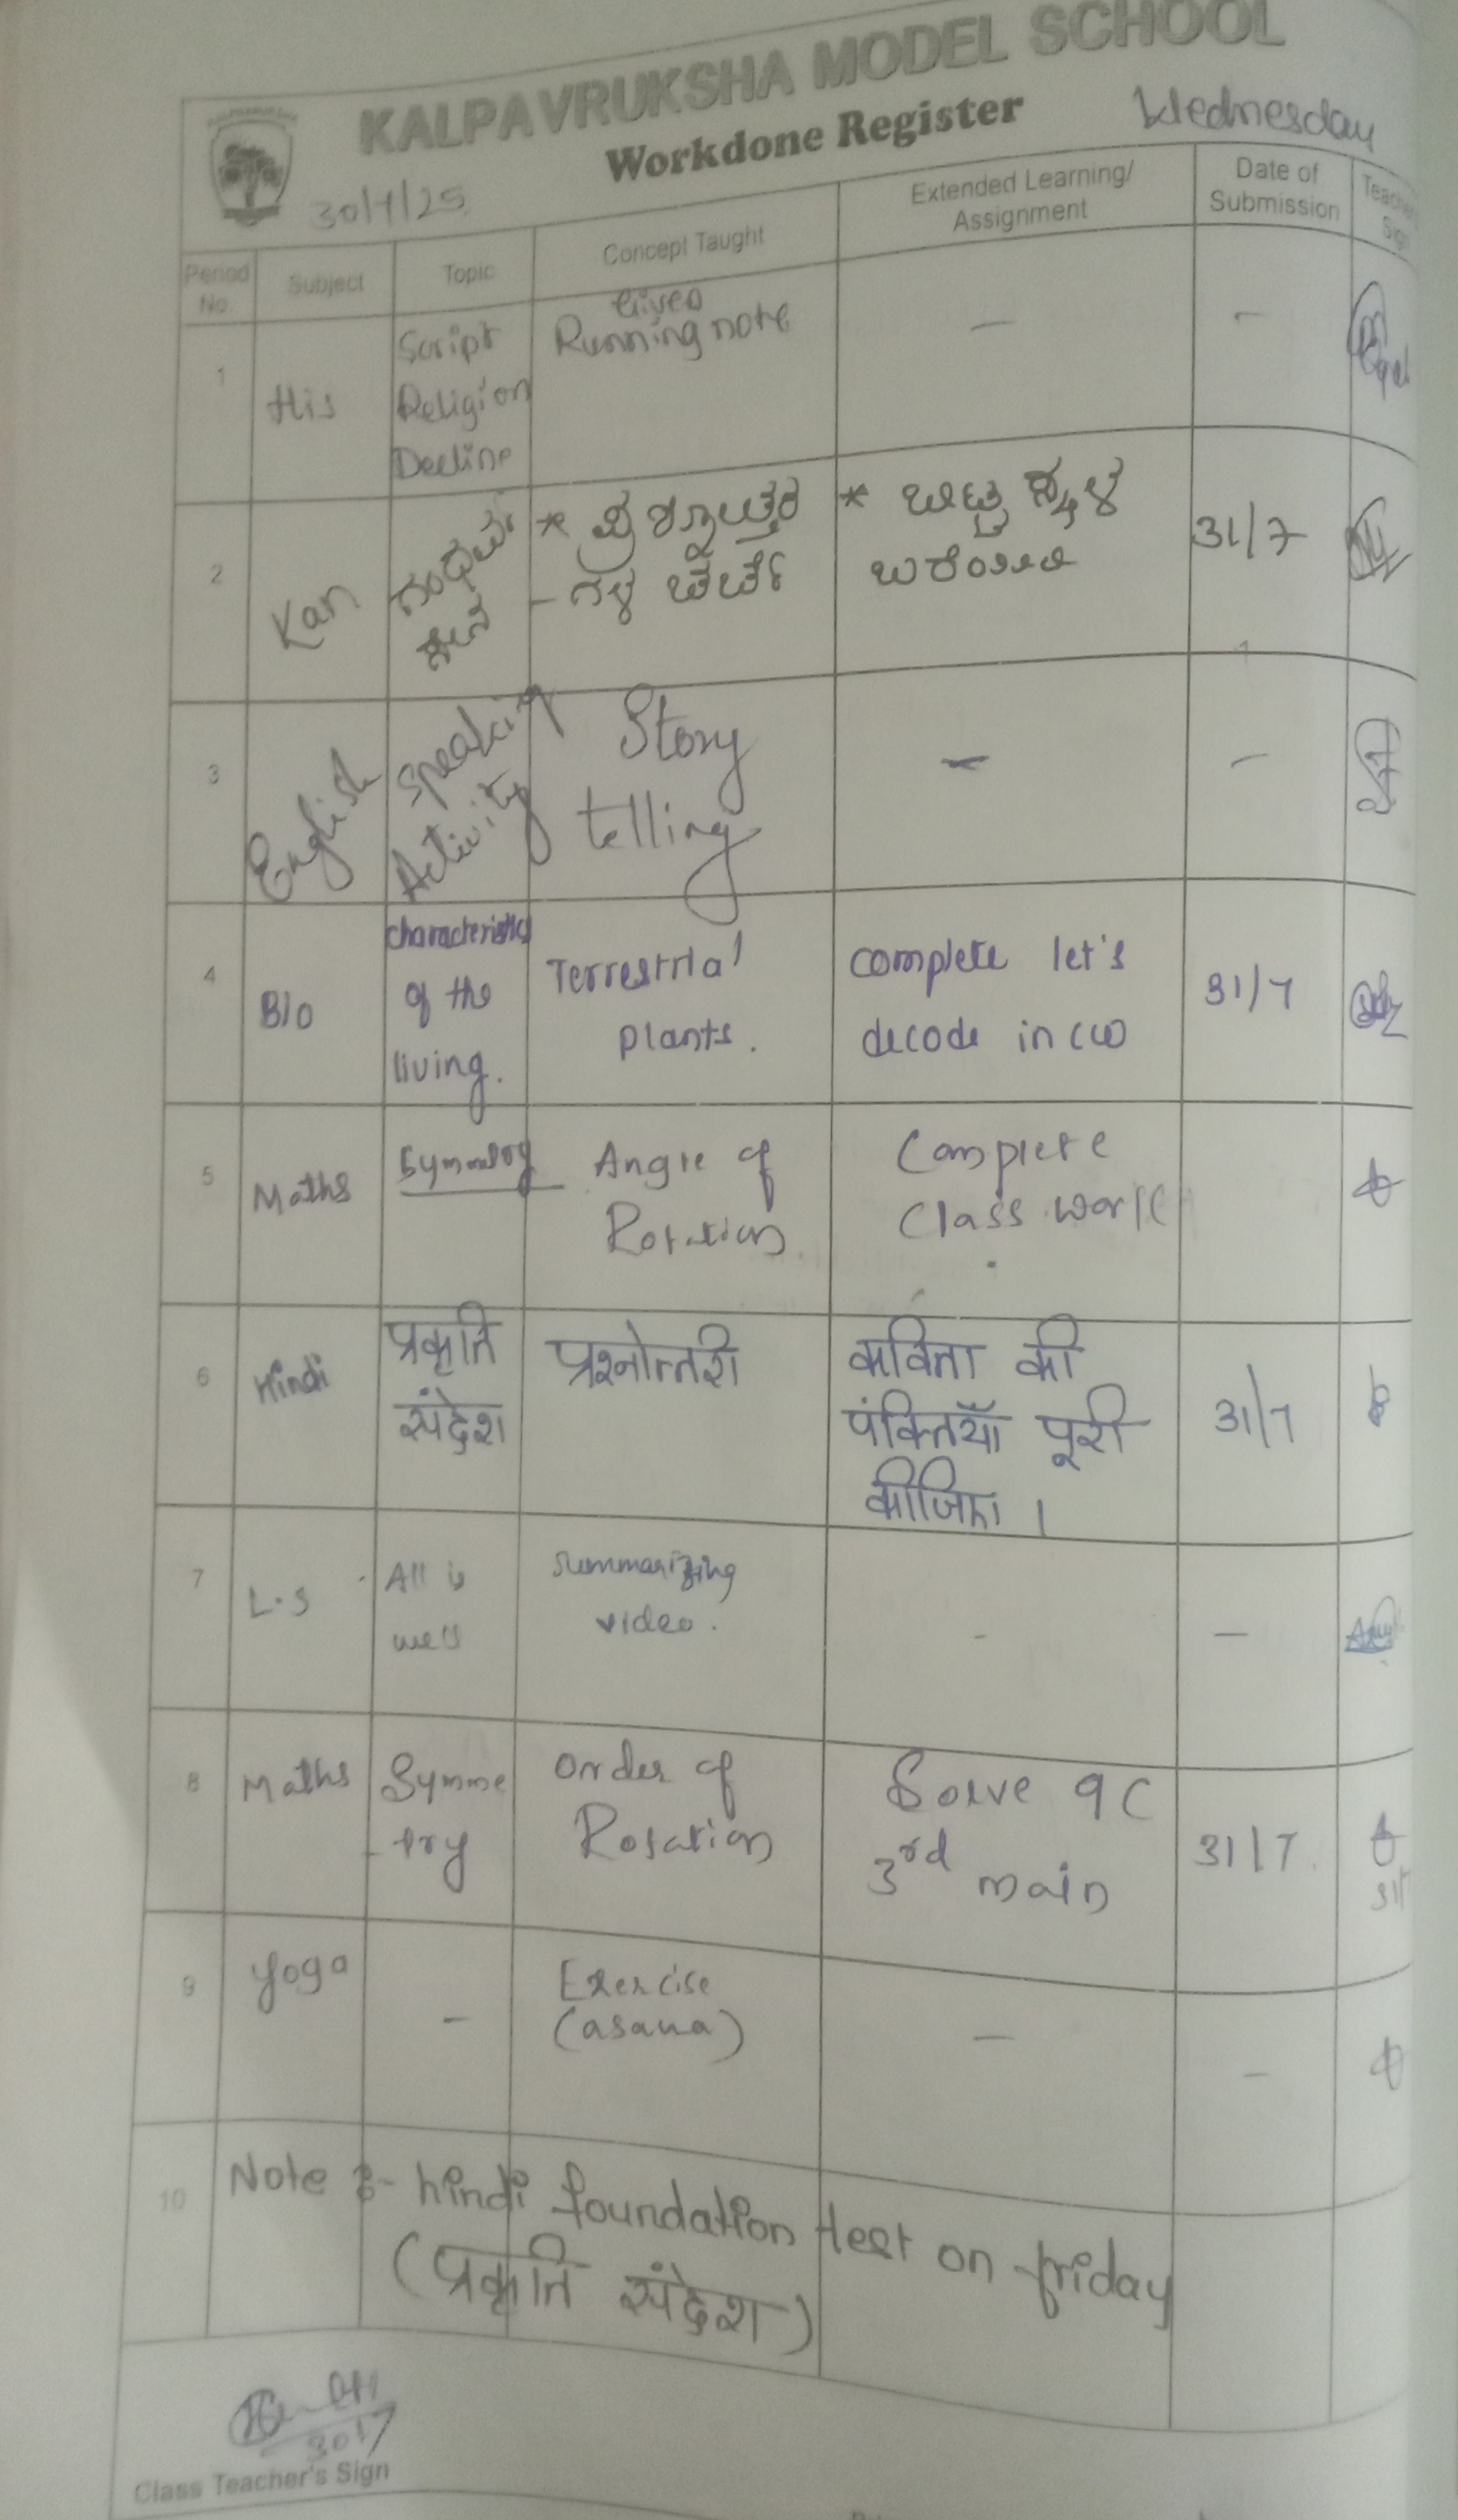 KALPAVRUKSHA MODEL SCHOOL
Workdone Register
Wednesday
30/7/25
Period No.
Subject
Topic
Concept Taught
Extended Learning/
Assignment
Date of
Submission
Teacher's
Sign
1
His
Script
Religion
Decline
Given
Running note
—
—
2
Kan
* ಪ್ರಶ್ನೋತ್ತರ
- ಗಳ ಚರ್ಚೆ
* ಬಿಟ್ಟ ಸ್ಥಳ
31/7
3
English
Speaking
Activity
Story
telling
—
—
4
Bio
characteristics
of the
living.
Terrestrial
plants.
complete let's
decode in CW
31/7
5
Maths
Symmetry
Angle of
Rotation
Complete
Class work
.
6
Hindi
प्रकृति
संदेश
प्रश्नोत्तरी
कविता की
पंक्तियाँ पूरी
कीजिए।
31/7
7
L.S
All is
well
Summarizing
video.
-
—
8
Maths
Symme
-try
Order of
Rotation
Solve 9C
3rd main
31/7
9
Yoga
-
Exercise
(asana)
—
—
10
Note :- hindi foundation test on friday
(प्रकृति संदेश)
30/7
Class Teacher's Sign